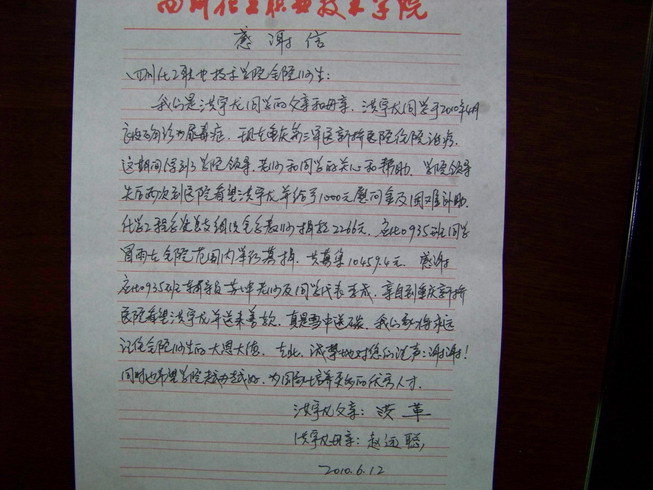 四川化工职业技术学院
感谢信
四川化工职业技术学院全院师生：
我们是洪宇龙同学的父亲和母亲，洪宇龙同学于2010年4月
被确诊为尿毒症，现在重庆第三军医新桥医院住院治疗，
这期间得到了学院领导、老师和同学的关心和帮助，学院领导
先后两次到医院看望洪宇龙并给予1000元慰问金及困难补助，
化学工程系党总支组织全系教师捐款2266元，应化0935班同学
冒雨在全院范围内举行募捐，共募集10459.4元。感谢
应化0935班辅导员 老师及同学代表 ，亲自到重庆新桥
医院看望洪宇龙并送来善款，真是雪中送碳，我们全家将永远
记住全院师生的大恩大德，在此，诚挚地对您们说声：谢谢！
同时也希望学院越办越好，为国家培养更多的优秀人才。
洪宇龙父亲：洪革
洪宇龙母亲：赵 聪
2010.6.12